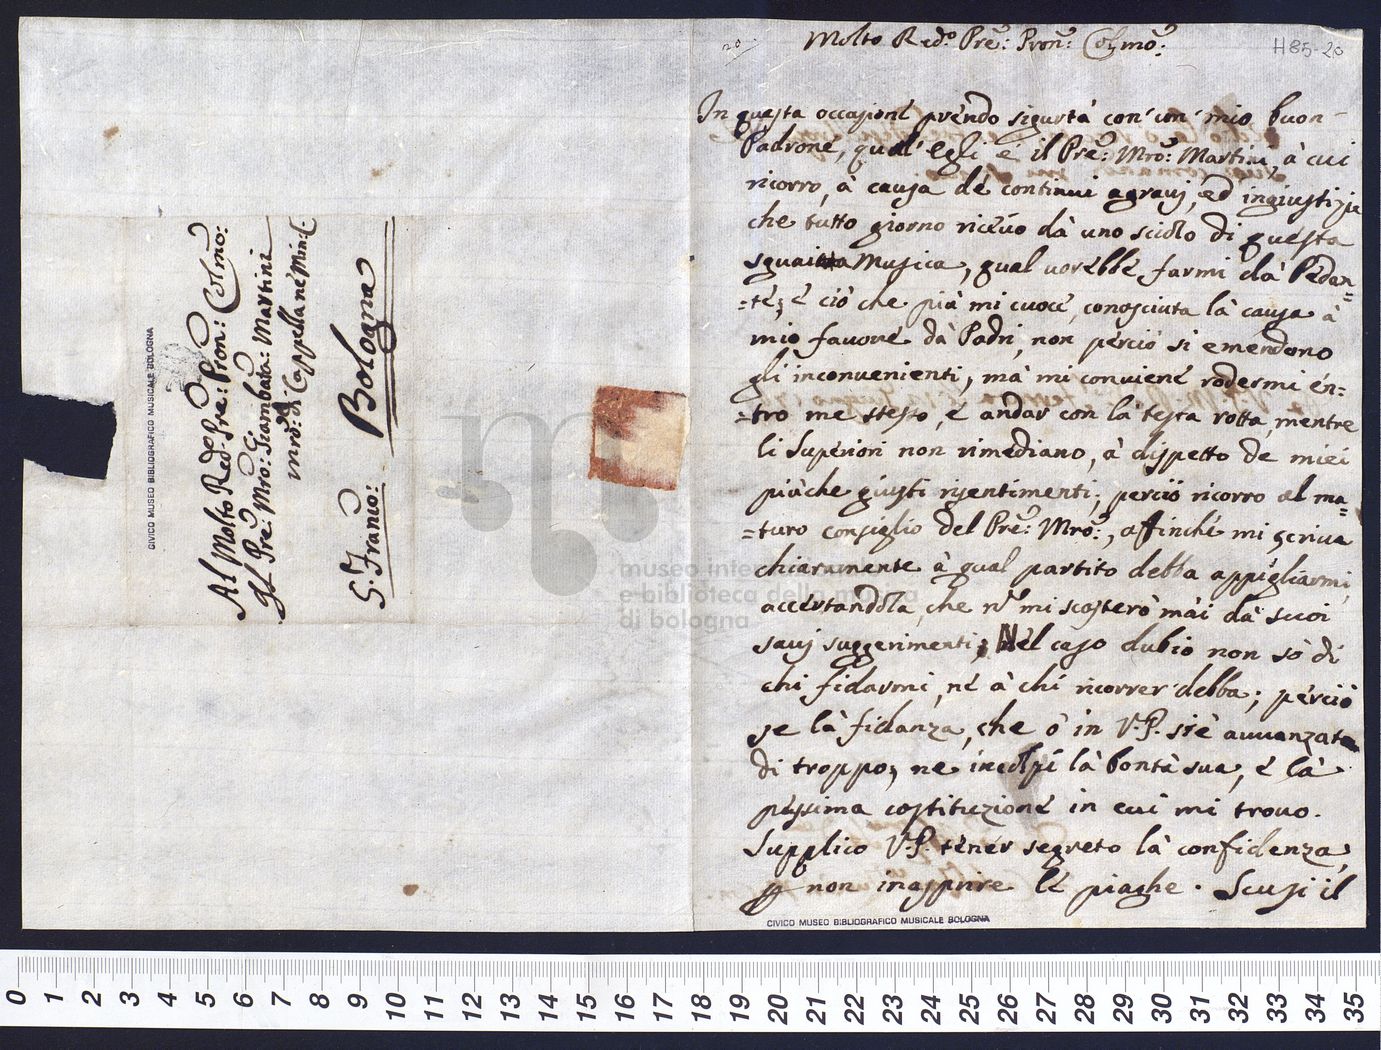 Al Molto Red.º Pre: Pron: Colmo:
Il Pre: Mro: Giambata: Martini
Mro: di Cappella ne Min: C
S. Franco:
Bologna
CIVICO MUSEO BIBLIOGRAFICO MUSICALE BOLOGNA
20
Molto Red.º Pre: Pron: Colmo:
H85-20
In questa occasione prendo sigurtà con' un' mio buon
Padrone, qual' egli è il Pre: Mro: Martini, à cui
ricorro, à causa de continui agravj, ed ingiustizie
che tutto giorno ricevo dà uno sciolo di questa
Musica, qual vorebbe farmi dà Pedan=
=te; e ciò che più mi cuoce, conosciuta là causa à
mio favore dà Padri, non perciò si emendono
gli inconvenienti, mà mi conviene rodermi en=
=tro me stesso, e andar con là testa rotta, mentre
li Superiori non rimediano, à dispetto de miei
più che giusti risentimenti; perciò ricorro al ma=
=turo consiglio del Pre: Mro:, affinché mi scriva
chiaramente à qual partito debba appigliarmi,
accertandola, che nº mi scosterò mai dà suoi
savj suggerimenti; Nel caso dubio non sò di
chi fidarmi, né à chi ricorrer debba; perciò
se là fidanza, che ò in V.P. siè avvanzata
di troppo, ne incolpi là bontà sua, e là
pessima costituzione in cui mi trovo.
Supplico V.P. tener segreto là confidenza,
non inasprire le piaghe. Scusi il
CIVICO MUSEO BIBLIOGRAFICO MUSICALE BOLOGNA
museo internazionale
e biblioteca della musica
di bologna
0 1 2 3 4 5 6 7 8 9 10 11 12 13 14 15 16 17 18 19 20 21 22 23 24 25 26 27 28 29 30 31 32 33 34 35